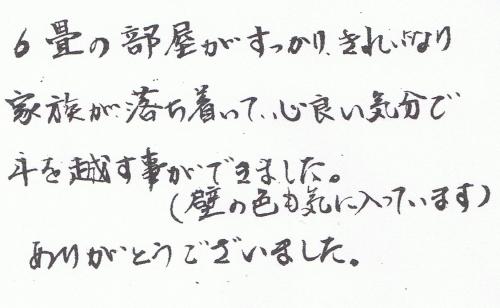 6畳の部屋がすっかりきれいになり
家族が落ち着いて、心良い気分で
年を越す事ができました。
(壁の色も気に入っています)
ありがとうございました。